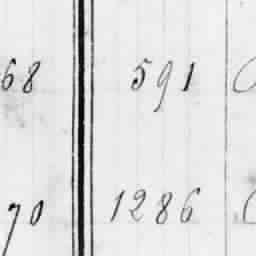 68 591
70 1286